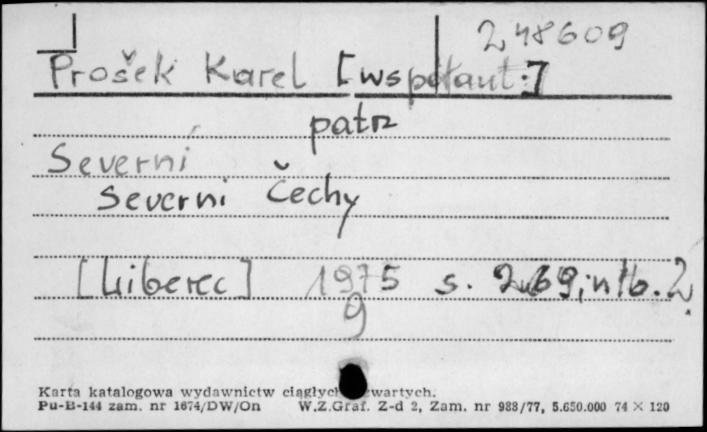 248609
Prošek Karel [współaut.]
patrz
Severní
Severni Čechy
[Liberec] 1975 s. 269, nlb. 2
9
Karta katalogowa wydawnictw ciągłych
Pu-B-144 zam. nr 1674/DW/On W.Z.Graf. Z-d 2, Zam. nr 988/77, 5.650.000 74 × 120